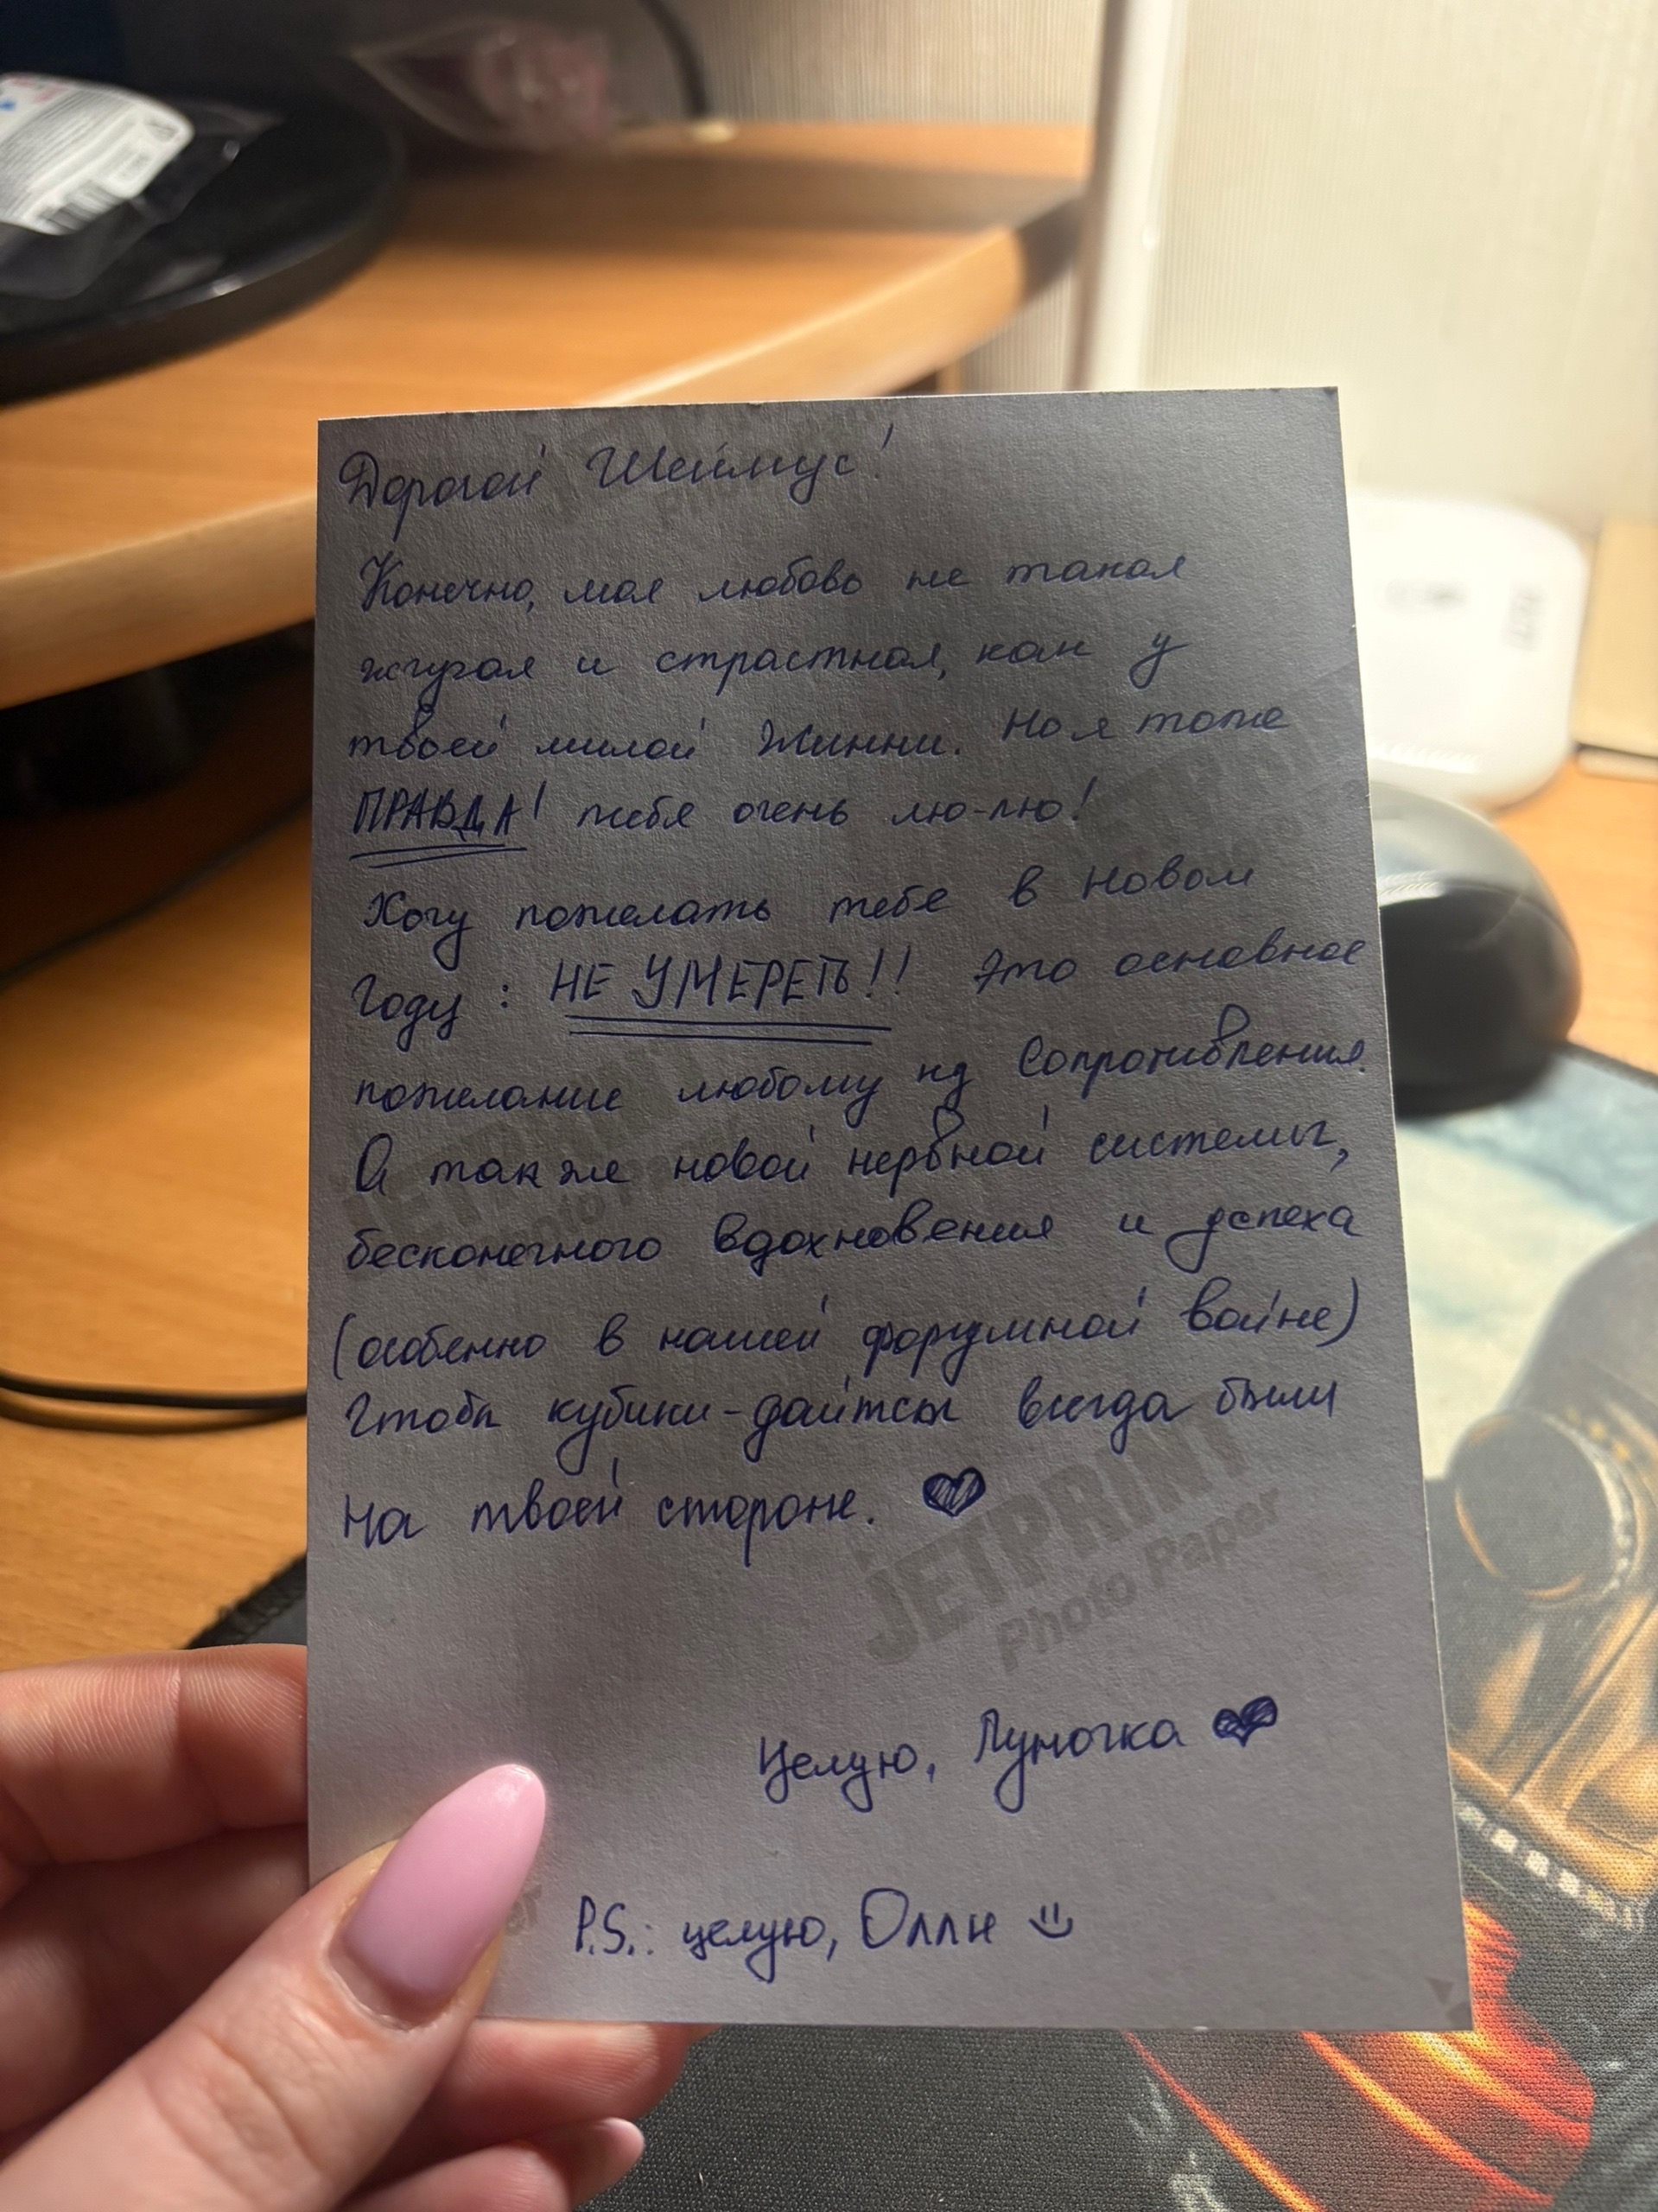 Дорогой Шеймус!
Конечно, моя любовь не такая
жгучая и страстная, как у
твоей милой Жинни. Но я тоже
ПРАВДА! тебя очень лю-лю!
Хочу пожелать тебе в Новом
Году: НЕ УМЕРЕТЬ!! Это основное
пожелание любому из Сопротивления.
А также новой нервной системы,
бесконечного вдохновения и успеха
(особенно в нашей форумной войне)
Чтобы кубики-дайсы всегда были
на твоей стороне.
JETPRINT
Photo Paper
Целую, Луночка
P.S.: целую, Олли